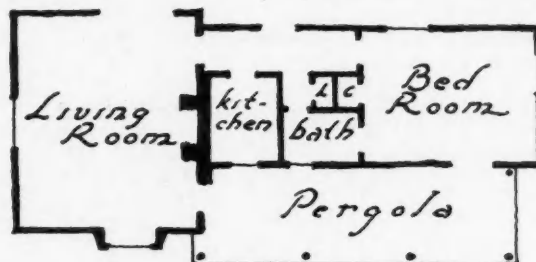 Living
Room
kit-
chen
bath
L
C
Bed
Room
Pergola